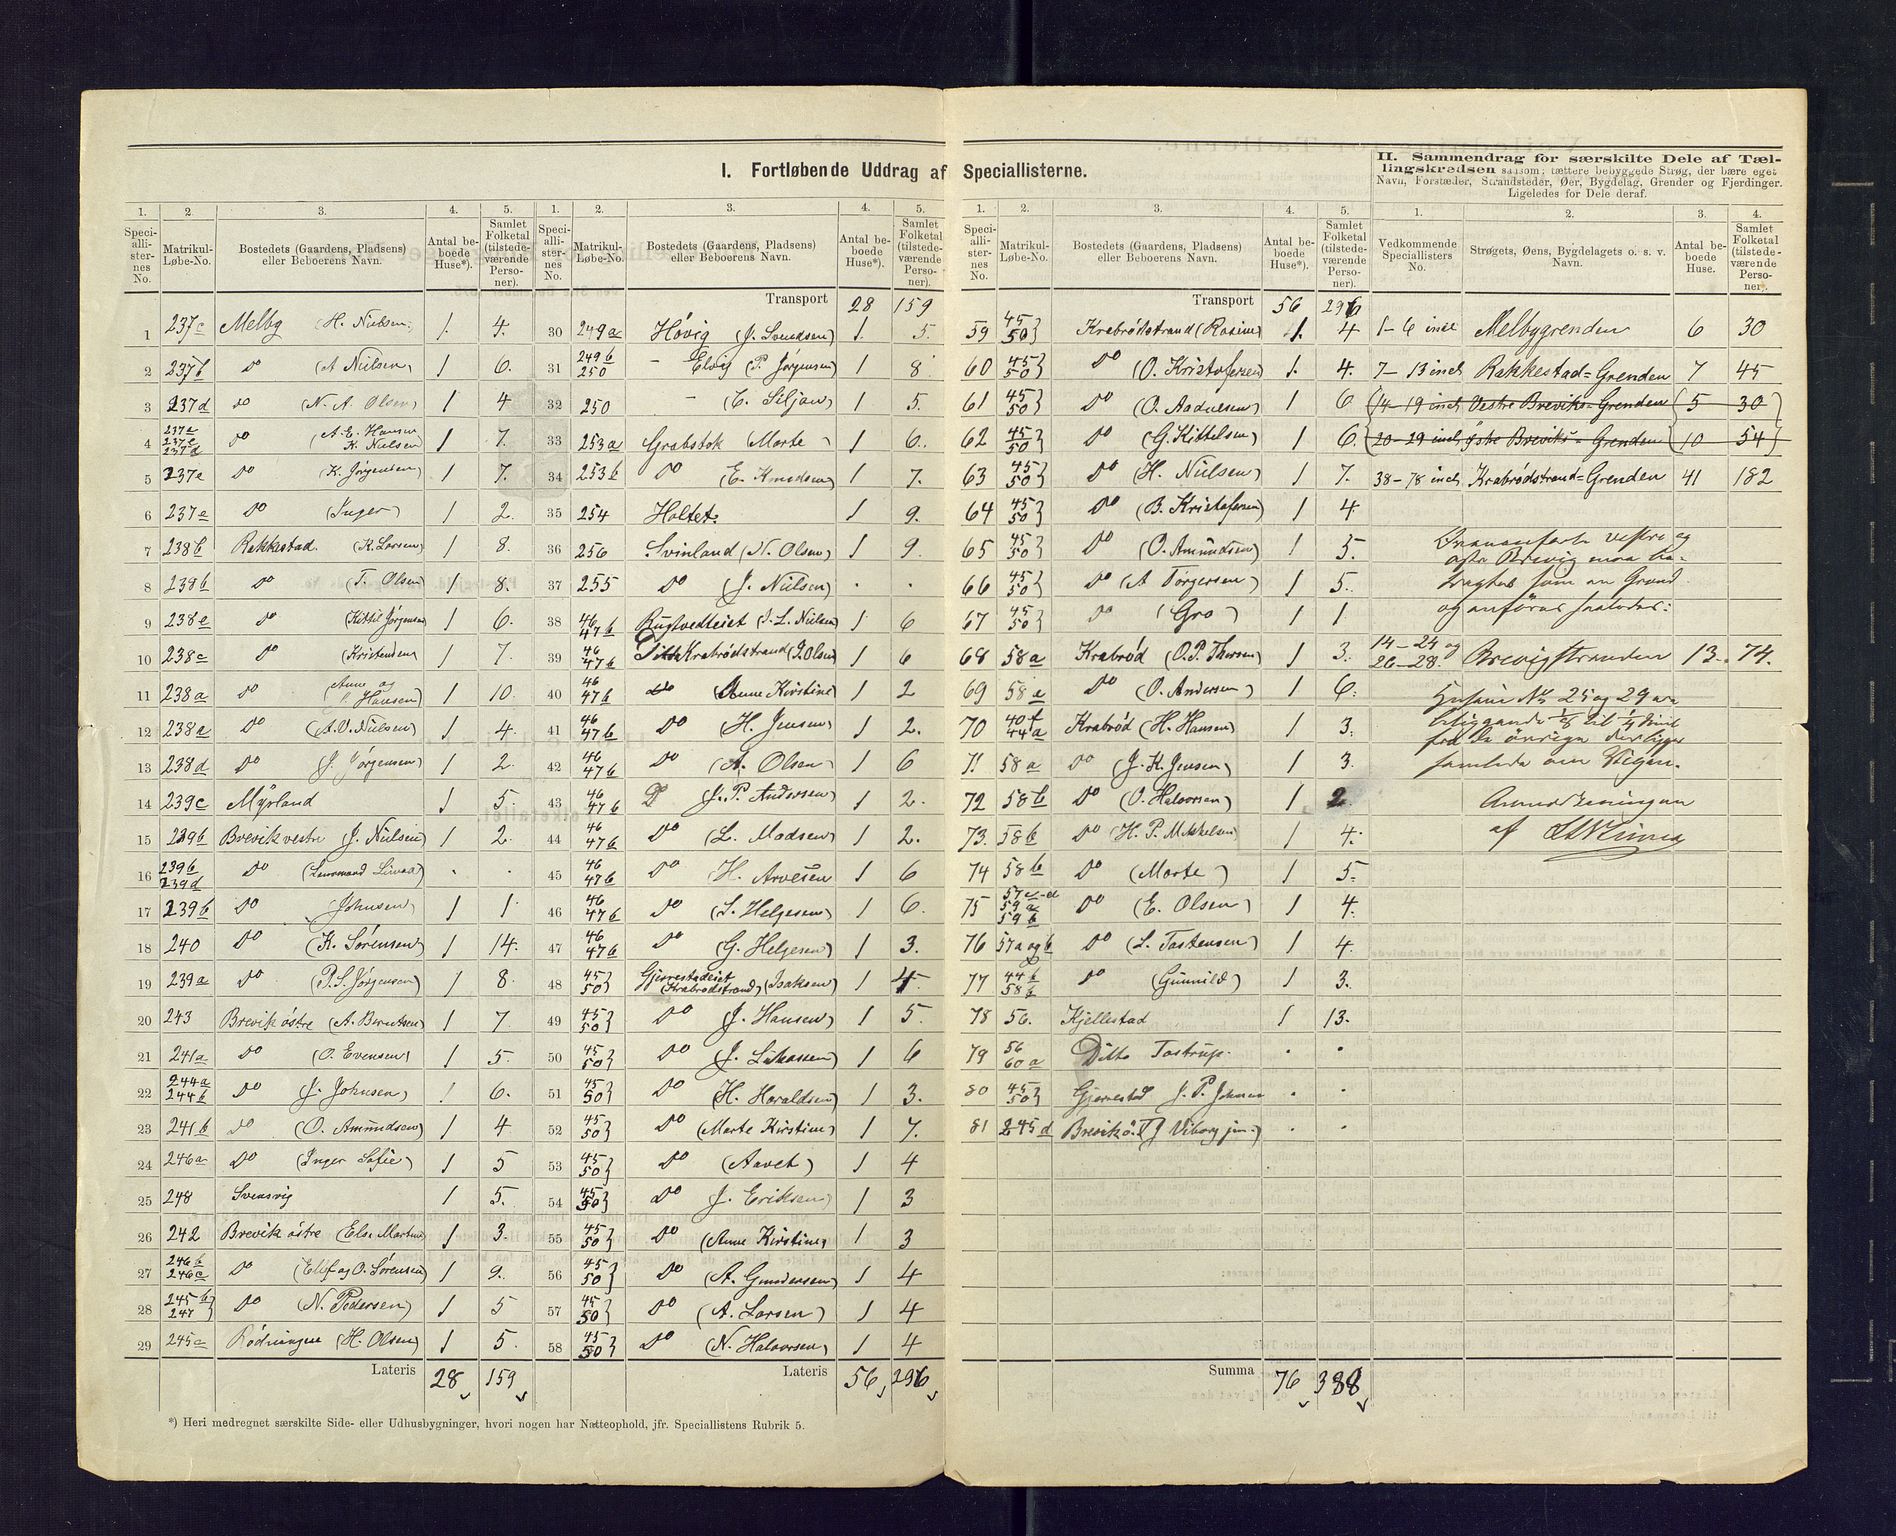 I. Fortløbende Uddrag af Speciallisterne.
1. 2. 3. 4. 5.
Speciallisternes No. Matrikul-Løbe-No. Bostedets (Gaardens, Pladsens) eller Beboerens Navn. Antal beboede Huse*). Samlet Folketal (tilstedeværende Personer).
1 237c Melby (H. Nielsen) 1. 4.
2 237b Do (A Nielsen) 1 6.
3 237d Do (N. A. Olsen) 1 4
4 237a 237c 237d Do (A. E. Hansen K. Nielsen) 1 7.
5 237e Do (K. Jørgensen) 1 7.
6 237e Do (Inger) 1 2.
7 238b Rakkestad. (K. Larsen) 1 8.
8 238b Do (T. Olsen) 1 8.
9 238e Do (Kittil Jørgensen) 1 6.
10 238c Do (Kristense) 1 7.
11 238a Do (Anne og Hansen) 1 10.
12 238a Do (A. O. Nielsen) 1 4.
13 238d Do (J. Jørgensen) 1 2.
14 239c Myrland 1 5.
15 239b Brevik vestre (J. Nielsen) 1 2.
16 239b 239d Do (Lensmand) . .
17 239b Do (Johnsen) 1 1
18 240 Do (K. Sørensen) 1 14.
19 239a Do (P. S. Jørgensen) 1 8.
20 243 Brevik østre (A. Berntsen) 1 7.
21 241a Do (O. Evensen) 1 5.
22 244a 244b Do (J. Johnsen) 1 6.
23 241b Do (O. Amundsen) 1 4
24 246a Do (Inger Sofie) 1 5
25 248 Svensvig 1 5.
26 242 Brevik østre (Else Marthe) 1 3.
27 246b 246a Do (Ellef og O. Sørensen) 1 9.
28 245b 247 Do (N. Pedersen) 1 5
29 245a Rødningen (H. Olsen) 1 5.
Lateris 28 159
*) Heri medregnet særskilte Side- eller Udhusbygninger, hvori nogen har Natteophold, jfr. Speciallistens Rubrik 5.
1. 2. 3. 4. 5.
Speciallisternes No. Matrikul-Løbe-No. Bostedets (Gaardens, Pladsens) eller Beboerens Navn. Antal beboede Huse*). Samlet Folketal (tilstedeværende Personer).
Transport 28 159
30 249a Høvig (J. Svendsen) 1. 5.
31 249b 250 - Elvig (P. Jørgensen) 1 8
32 250 - (E. Siljan) 1 5.
33 253a Grabstok (Marte) 1 6.
34 253b Do (E. Knudsen) 1 7.
35 254 Holtet. 1 9.
36 256 Svinland (N. Olsen) 1 9.
37 255 Do (J. Nielsen) . .
38 46 47b Rugtvedteiet (J. L. Nielsen) 1 6
39 46 47b Ditto Krabrødstrand (J. Olsen) 1 6
40 46 47b Do (Anne Kirstine) 1 2
41 46 47b Do (H. Jensen) 1 2.
42 46 47b Do (A. Olsen) 1 6
43 46 47b D (J. P. Andersen) 1 2.
44 46 47b Do (L. Madsen) 1 2.
45 46 47b Do (H. Arvesen 1 6
46 46 47b Do (S. Helgesen) 1 6.
47 46 47b Do (G. Helgesen) 1 3.
48 45 50} Gjerrestadeiet (Krabrødstrand) (Isaksen) 1 4.
49 45 50} Do (J. Hansen) 1 5.
50 45 50} Do (J. Likassen) 1 6
51 45 50} Do (H. Haraldsen) 1 3.
52 45 50} Do (Marte Kirstine) 1 7.
53 45 50} Do (Aavet) 1 4
54 45 50} Do (J. Eriksen) 1 3
55 45 50} Do (Anne Kirstine) 1 3
56 45 50} Do (A. Gundersen) 1 4
57 45 50} Do (A. Larsen) 1 4
58 45 50} Do (N. Halvorsen) 1 4
Lateris 56 296
1. 2. 3. 4. 5.
Speciallisternes No. Matrikul-Løbe-No. Bostedets (Gaardens, Pladsens) eller Beboerens Navn. Antal beboede Huse*). Samlet Folketal (tilstedeværende Personer).
Transport 56 296
59 45 50} Krabrødstrand (Rosine) 1. 4
60 45 50} Do (O. Kristofersen) 1. 4.
61 45 50} Do (O. Aadnesen) 1 6
62 45 50} Do (G. Kittelsen) 1 6.
63 45 50} Do (H. Nielsen) 1 7.
64 45 50} Do (B. Kristofersen) 1 4
65 45 50} Do (O. Amundsen) 1 5.
66 45 50} Do (A Torgersen) 1 5.
67 45 50} Do (Gro) 1 1
68 58a Krabrød (O. P. Thorsen) 1 3.
69 58a Do (O. Andersen) 1 6.
70 40f 44a Krabrød (H. Hansen) 1 3.
71 58a Do (J. K. Jensen) 1 3.
72 58b Do (O. Halvorsen) 1 2
73. 58b Do (H. P. Mikkelsen) 1 4.
74 58b Do (Marte) 1 5.
75 57c-d 59a 59b Do (E. Olsen) 1 4.
76 57a og b Do (L. Tostensen) 1 4
77 44b 58b Do (Gunnild) 1 3.
78 56. Kjellestad 1 13.
79 56 60a Ditto Tostrup. . .
80 45 50} Gjerrestad J. P. Johnsen . .
81 245d Brevik ö. (J Viborg jun.) . .
Summa 76 388
II. Sammendrag for særskilte Dele af Tællingskredsen saasom: tættere bebyggede Strøg, der bære eget Navn, Forstæder, Strandsteder, Øer, Bygdelag, Grender og Fjerdinger. Ligeledes for Dele deraf.
1. 2. 3. 4.
Vedkommende Speciallisters No. Strøgets, Øens, Bygdelagets o. s. v. Navn. Antal beboede Huse. Samlet Folketal (tilstedeværende Personer).
1-6 incl Melbygrenden 6 30
7-13 incl Rakkestad=Grenden 7 45
(14-19 incl Vestre Breviks=Grenden (5 30)
(20-29 incl østre Breviks=Grenden (10 54)
38-78 incl Krabrødstrand=Grenden 41 182
Ovenanførte vestre og
østre Brevig maa be-
tragtes som en Grend
og anføres saaledes:
14-24 og 26-28 Brevigstranden 13. 74.
Husene No 25 og 29 ere
beliggende 1/8 til 1/4 Miil
fra de øvrige der ligger
samlede om Vegen.
Anmærkningen
af